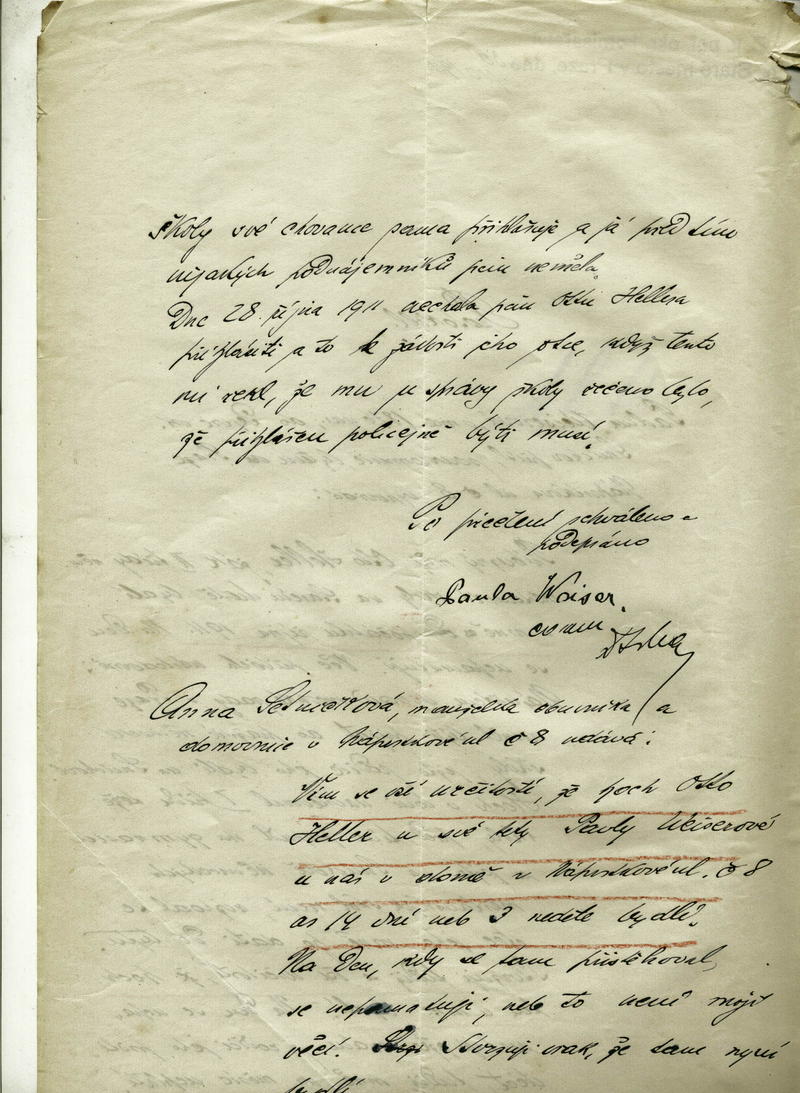 školy své chovance sama přihlašuje a já před tím
nijakých podnájemníků jsem neměla.
Dne 28. října 1911 nechala jsem Ottu Hellera
přihlásiti a to k žádosti jeho otce, když tento
mi řekl, že mu u správy školy řečeno bylo,
že přihlášen policejně býti musí.
Po přečtení schváleno a
podepsáno
Paula Weiser.
coram
Anna manželka obuvníka a
domovnice v Náprstkově ul. č 8 udává:
Vím se vší určitostí, že hoch Otto
Heller u své tety Pavly Weiserové
u nás v domě v Náprstkově ul. č 8
as 14 dní neb 3 neděle bydlí.
Na den, kdy se tam přistěhoval,
se nepamatuji, neb to není mojí
věcí. Stvrzuji však, že tam nyní
bydlí